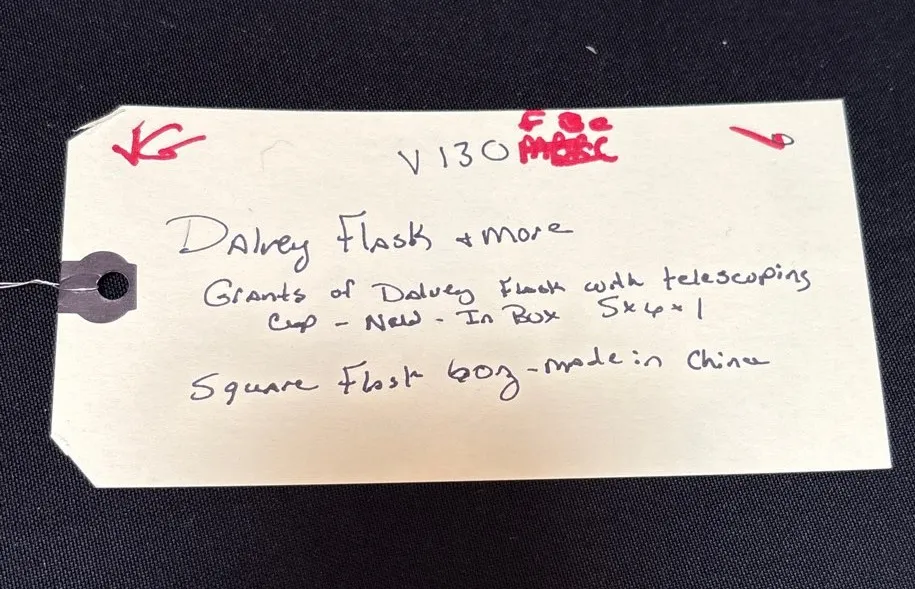 VG V130
Dalvey Flask + more
Grants of Dalvey Flask with telescoping
Cup - New - In Box 5x4x1
Square Flask 6oz - made in China